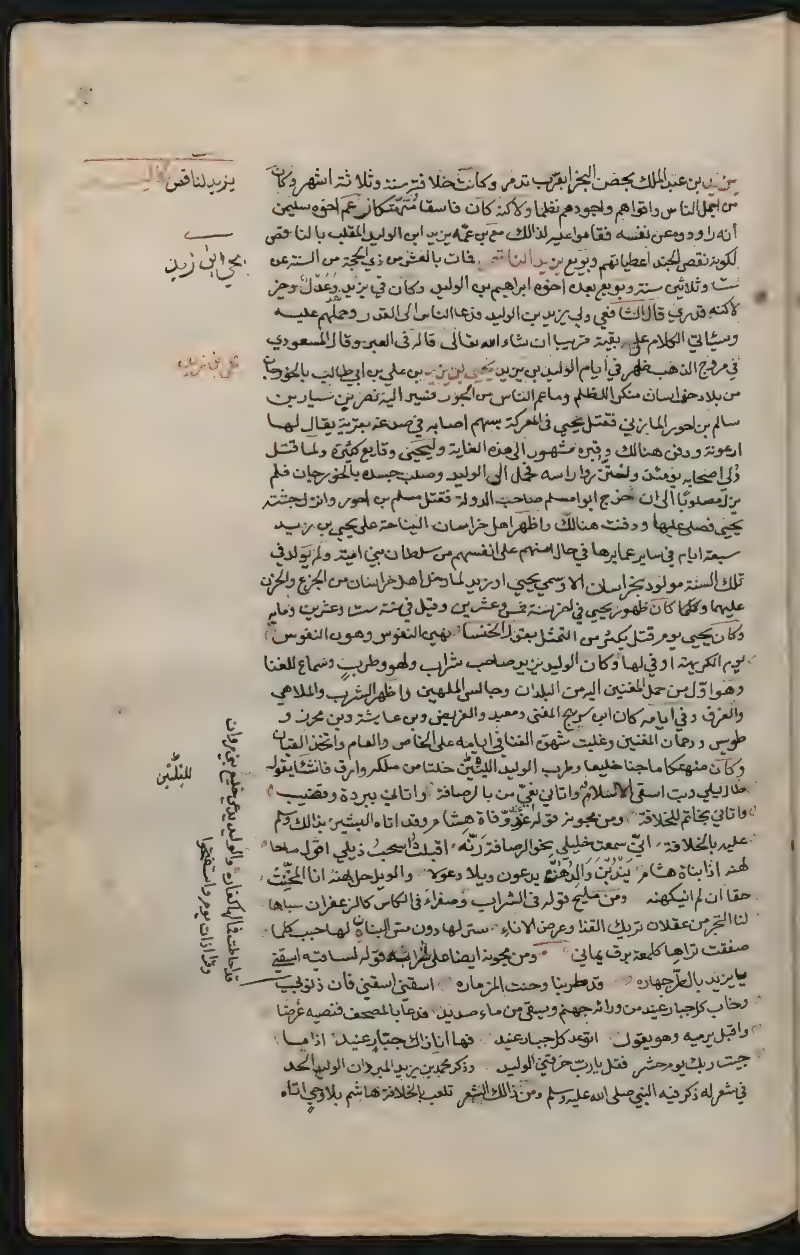 بن يزيد بن عبد الملك بحصن البخرا بقرب تدمر وكانت خلافته سنة وثلاثة اشهر وكان
من اجمل الناس واقواهم واجودهم نظما ولاكنه كان فاسقا متهتكا زعم اخوه سليمن
أنه راوده عن نفسه فقاموا عليه لذالك مع بن عمه يزيد ابن الوليد الملقب بالناقص
لكونه نقص الجند اعطياتهم وبويع يزيد الناقص فمات بالعشر من ذي الحجة من السنة عن
ست وثلاثين سنة وبويع بعده اخوه ابراهيم بن الوليد وكان في يزيد وعدل وخير
لاكنه قدري قال الشافعي ولي يزيد بن الوليد فدعا الناس الى القدر وحملهم عليه
وسيأتي الكلام على بقية قريبا ان شاء الله تعالى قاله في العبر وقال المسعودي
في مروج الذهب ظهر في أيام الوليد بن يزيد يحيى بن زيد بن علي بن ابي طالب بالجوزجان
من بلاد خراسان منكرا للظلم وما عم الناس من الجور فسير اليه نصر بن سيار بن
سالم بن احور المازني فقتل يحيى في المعركة بسهم اصابه في صدغه بقرية يقال لها
ارعونة ودفن هنالك وقبره مشهور الى هذه الغاية وليحيى وقايع كثيرة ولما قتل
ولى اصحابه يومئذ واحتزوا راسه فحمل الى الوليد وصلب جسده بالجوزجان فلم
يزل مصلوبا الى ان خرج ابوا مسلم صاحب الدولة فقتل مسلم بن احور وانزل جثته
يحيى فصلى عليها ودفنت هنالك واظهر اهل خراسان النياحة على يحيى بن زيد
سبعة ايام في ساير عمايرها في حال امنهم على انفسهم من سلطان بني امية ولم يولد في
تلك السنة مولود بخراسان الا وسمي يحيى او زيد لما دخل اهل خراسان من الجزع والحزن
عليهما وكان ظهور يحيى في اخر سنة خمس وعشرين وقيل في سنة ست وعشرين وماية
وكان يحيى يوم قتل يكثر من التمثل بقول الخنسا نهين النفوس وهون النفوس
يوم الكريهة اوفى لها وكان الوليد بن يزيد صاحب شراب ولهو وطرب وسماع للغنا
وهو اول من حمل المغنين اليه من البلدان وجالس الملهين واظهر الشرب والملاهي
والعزف وفي ايامه كان ابن سريج المغني ومعبد والغريض وبن عايشة وبن محرز و
طويس ودحمان المغنين وغلبت شهوة الغنا في ايامه على الخاص والعام واتخذ القيان
وكان متهتكا ماجنا خليعا وطرب الوليد لليلتين خلتا من ملكه وارق فانشا يقول
طال ليلي وبت اسقى السلافه واتاني نعي من بالرصافة واتاني ببردة وقضيب
واتاني بخاتم للخلافة ومن مجونه قوله عند وفاة هشام وقد اتاه البشير بذالك وسلم
عليه بالخلافة اني سمعت خليلي نحو الرصافة رنه اقبلت اسحب ذيلي اقول ما حا
لهنه اذا بناة هشام يندبن والدهنه يدعون ويلا وعولا والويل حل لهنه انا المخنث
حقا ان لم انيكهنه ومن مليح قوله في الشراب وصفراء في الكاس كالزعفران سباها
لنا التجر من عسقلان تريك القذا وعرض الاناء ستر لها دون مس البنان لها حبب كلما
صفقت تراها كلمعة برق يماني ومن مجونه ايضا على شرابه قوله لساقيه اسقني
يا يزيد بالطرجهاره قد طربنا وحنت المزماره اسقني اسقني فان ذنوبي
وخاب كل جبار عنيد من ورائه جهنم ويسقى من ماء صديد فدعا بالمصحف فنصبه غرضا
واقبل يرميه وهو يقول اتوعد كل جبار عنيد فها انا ذاك جبار عنيد اذا ما
جيت ربك يوم حشر فقل يا رب خرقني الوليد وذكر محمد بن يزيد المبرد ان الوليد الحد
في شعر له ذكر فيه النبي صلى الله عليه وسلم ومن ذالك الشعر تلعب بالخلافة هاشم بلا وحي اتاه
يزيد الناقص
يحيى ابن زيد
يحيى بن زيد
لليلتين
قد احاطت فمالها كفاره والوليد يدعى خليع بني مروان
وقرا ذات يوم واستفتحوا